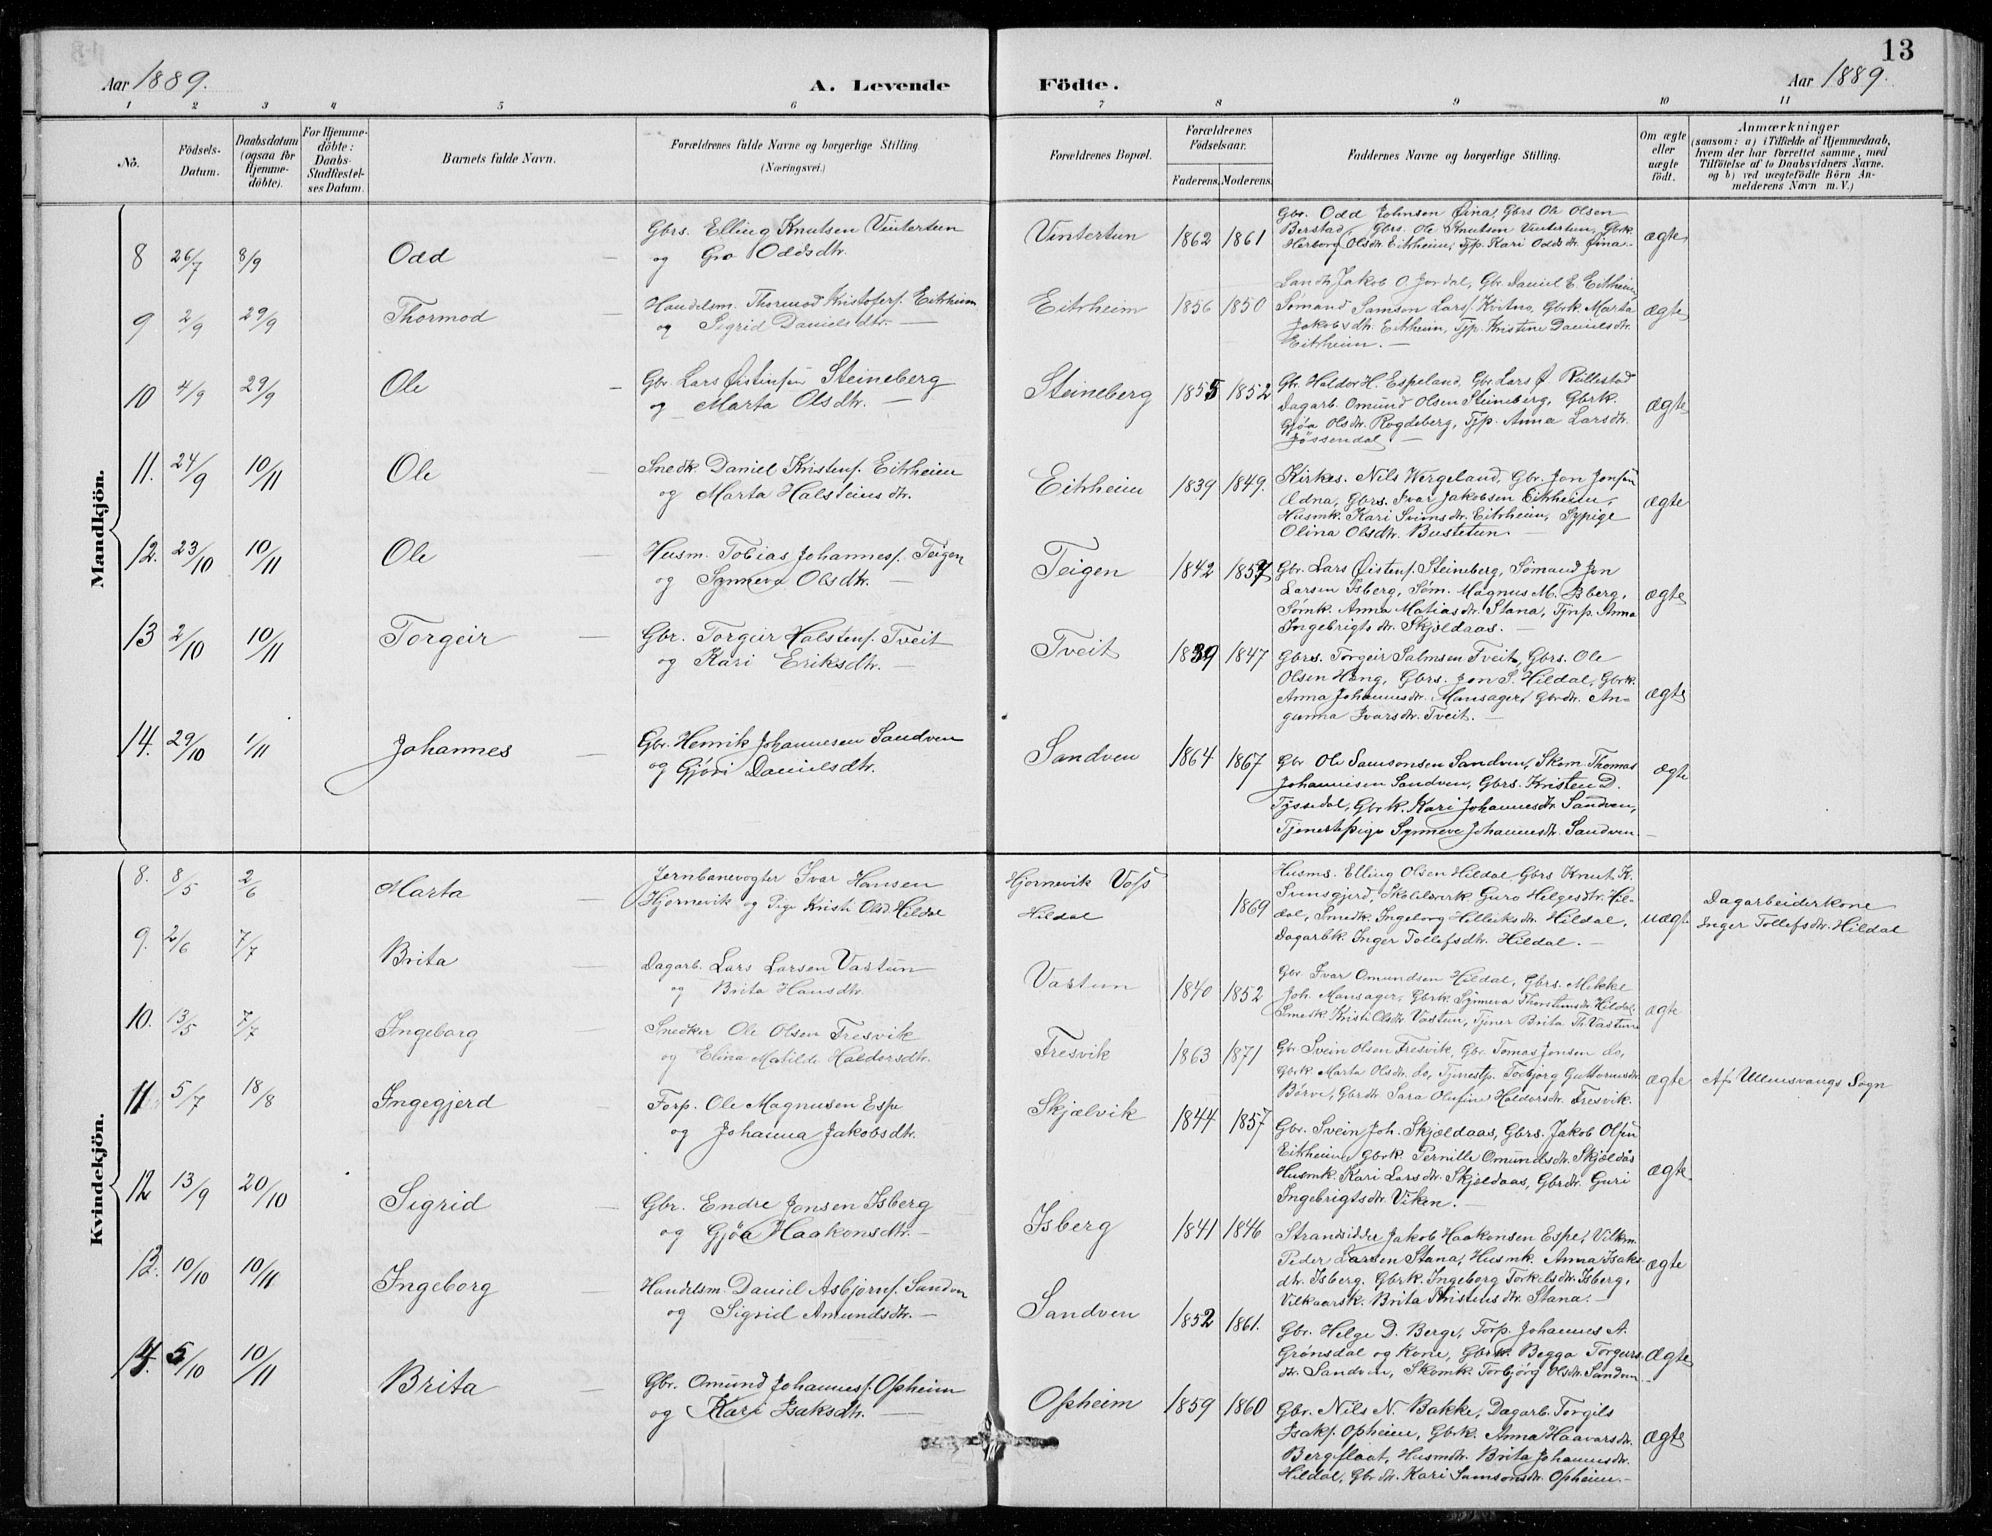 13
Aar 1889.
A. Levende
Födte.
Aar 1889.
1 2 3 4 5 6 7 8 9 10 11
No.
Födsels-Datum.
Daabsdatum (ogsaa for Hjemmedöbte).
For Hjemmedöbte: Daabs-Stadfestelses Datum.
Barnets fulde Navn.
Forældrenes fulde Navne og borgerlige Stilling (Næringsvei.)
Forældrenes Bopæl.
Forældrenes Födselsaar.
Faderens.
Moderens.
Faddernes Navne og borgerlige Stilling.
Om ægte eller uægte födt.
Anmærkninger
(saasom: a) i Tilfælde af Hjemmedaab, hvem der har forrettet samme, med Tilföielse af to Daabsvidners Navne. og b) ved uægtefödte Börn Anmelderens Navn m. V.)
Mandkjön.
8 26/7 8/9 Odd
Gbrs. Elling Knutsen Vintertun
og Gro Oddsdtr.
Vintertun 1862 1861
Gbr. Odd Johnsen Øina, Gbrs Ole Olsen
Berstad, Gbrs. Ole Knutsen Vintertun, Gbrk.
Herborg Olsdtr. Eitrheim, Tjp. Kari Oddsdtr. Øina.
ægte
9 2/9 29/9 Thormod
Handelsm. Thormod Kristofers. Eitrheim
og Sigrid Danielsdtr.
Eitrheim 1856 1850
Landh. Jakob O. Jordal, Gbr. Daniel E. Eitrheim
Sømand Samson Lars. Kvitno, Gbrk. Marta
Jakobsdtr. Eitrheim, Tjp. Kristine Danielsdtr.
Eitrheim.
ægte
10 4/9 29/9 Ole
Gbr. Lars Øistinsen Steineberg
og Marta Olsdtr.
Steineberg 1855 1852
Gbr. Haldor H. Espeland, Gbr Lars Ø. Rullestad
Dagarb. Omund Olsen Steineberg, Gbrk.
Gjøa Olsdtr. Rogdeberg, Tjp. Anna Larsdtr.
Jøssendal
ægte
11. 24/9 10/11 Ole
Snedk. Daniel Kristens. Eitrheim
og Marta Halsteinsdtr.
Eitrheim 1839 1849.
Kirkes. Nils Wergeland, Gbr. Jon Jonsen
Ædna, Gbrs. Ivar Jakobsen Eitrheim,
Husmk. Kari Svinsdtr. Eitrheim, Sypige
Olina Olsdtr. Bustetun.
ægte
12. 23/10 10/11 Ole
Husm. Tobias Johannes. Teigen
og Synneva Olsdtr.
Teigen 1842 1857
Gbr. Lars Øistens. Steineberg, Sømand Jon
Larsen Isberg, Søm. Magnus M. Isberg,
Sømk. Anna Matiasdtr. Stana, Tjnp. Anna
Ingebrigtsdtr. Skjøldaas.
ægte
13 2/10 10/11 Torgeir
Gbr. Torgeir Halstens. Tveit
og Kari Eriksdtr.
Tveit 1839 1847
Gbrs. Torgeir Salmsen Tveit, Gbrs. Ole
Olsen Haug, Gbrs. Jon S. Hildal, Gbrk.
Anna Johannesdtr. Mansager, Gbrdtr. An-
gunna Ivarsdtr. Tveit.
ægte
14. 29/10 1/11 Johannes
Gbr. Henrik Johannesen Sandven
og Gjøri Danielsdtr.
Sandven 1864 1867
Gbr Ole Samsonsen Sandven, Skom. Thomas
Johannesen Sandven, Gbrs. Kristen D.
Tyssedal, Gbrk. Kari Johannesdtr. Sandven,
Tjenestepige Synneve Johannesdtr. Sandven
ægte
Kvindekjön.
8. 8/5 2/6 Marta
Jernbanevogter Ivar Hansen
Hjørnevik og Pige Kristi Olsd Hildal
Hjørnevik Voss
Hildal
1869
Husms. Elling Olsen Hildal Gbrs Knut K.
Svinsgjerd, Skolelærerk Guro Helgesdtr. Hil-
dal, Smedk. Ingeborg Helleiksdtr. Hildal,
Dagarbk. Inger Tollefsdtr. Hildal.
uægte
Dagarbeiderkone
Inger Tollefsdtr. Hildal
9. 2/6 7/7 Brita
Dagarb. Lars Larsen Vastun
og Brita Hansdtr.
Vastun 1840 1852
Gbr Ivar Omundsen Hildal, Gbrs. Mikkel
Joh. Mansager, Gbrk. Synneva Thorsteinsdtr Hildal
Smedk Kristi Olsdtr. Vastun, Tjener Brita Th. Vastun
ægte
10. 13/5 7/7 Ingeborg
Snedker Ole Olsen Fresvik
og Elina Matilde Haldorsdtr.
Fresvik 1863 1871
Gbr Svein Olsen Fresvik, Gbr. Tomas Jonsen do,
Gbrk Marta Olsdtr. do, Tjenestp. Torbjørg Guttormsdtr
Børve, Gbrdtr Sara Olufine Haldorsdtr. Fresvik.
ægte
Af Ullensvangs Sogn
11. 5/7 18/8 Ingegjerd
Forp. Ole Magnusen Espe
og Johanna Jakobsdtr.
Skjælvik 1844 1857
Gbr. Svein Joh. Skjældaas, Gbrs. Jakob Olsen
Eitrheim, Gbrk. Pernille Omundsdtr. Skjældås
Husmk. Kari Larsdtr. Skjøldaas, Gbrdtr. Guri
Ingebrigtsdtr. Viken.
ægte
12 13/9 20/10 Sigrid
Gbr. Endre Jonsen Isberg
og Gjøa Haakonsdtr.
Isberg 1841 1846
Strandsidder Jakob Haakonsen Espe, Vilkm.
Peder Larsen Stana, Husmk. Anna Isaks-
dtr. Isberg. Gbrk. Ingeborg Torkelsdtr. Isberg,
Vilkaarsk. Brita Kristensdtr. Stana.
ægte
13. 10/10 10/11 Ingeborg
Handelsm. Daniel Asbjørns. Sandven
og Sigrid Amundsdtr.
Sandven 1852 1861.
Gbr. Helge D. Berge, Forp. Johannes A.
Grønsdal og Kone, Gbrk. Begga Torgeirs-
dtr. Sandven, Skomk. Torbjørg Olsdtr. Sandven
ægte
14. 5/10 10/11 Brita
Gbr. Omund Johannes. Opheim
og Kari Isaksdtr.
Opheim 1859 1860
Gbr. Nils N. Bakke, Dagarb. Torgils
Isaks. Opheim, Gbrk. Anna Haavarsdtr.
Bergeflaat, Husmdtr. Brita Johannsdtr.
Hildal, Gbrdtr. Kari Samsonsdtr. Opheim.
ægte